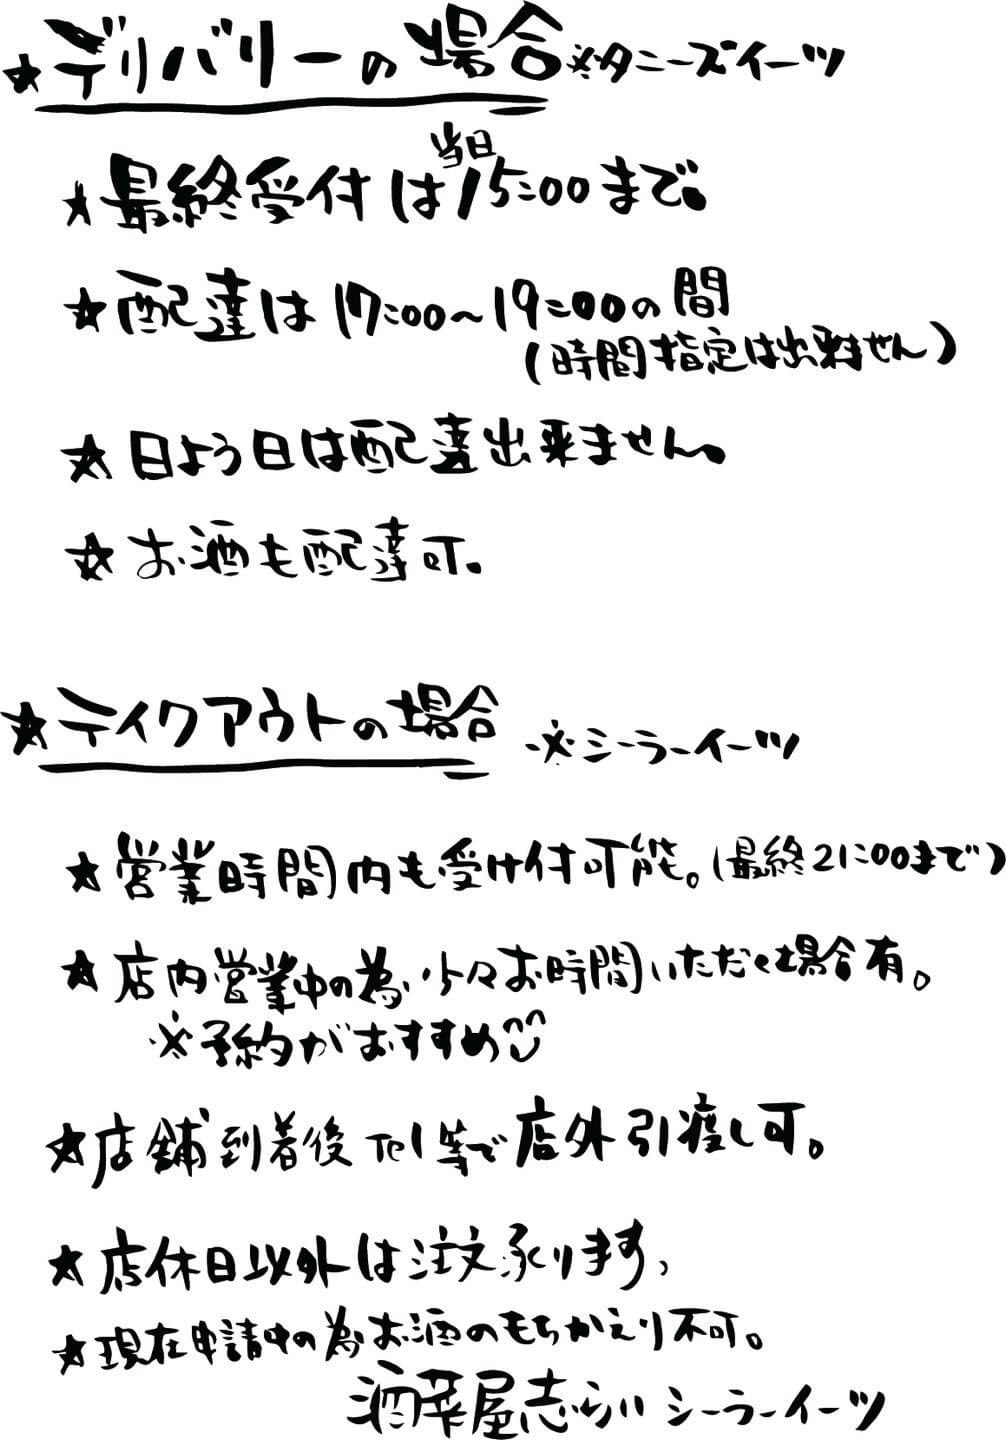 ★デリバリーの場合 ※タニーズイーツ
★最終受付は当日15:00まで。
★配達は17:00〜19:00の間
(時間指定は出来ません)
★日よう日は配達出来ません。
★お酒も配達可。
★テイクアウトの場合 ※シーラーイーツ
★営業時間内も受け付可能。(最終21:00まで)
★店内営業中の為、少々お時間いただく場合有。
※予約がおすすめ
★店舗到着後Tel等で店外引渡し可。
★店休日以外は注文承ります、
★現在申請中の為お酒のもちかえり不可。
酒菜屋志らい シーラーイーツ